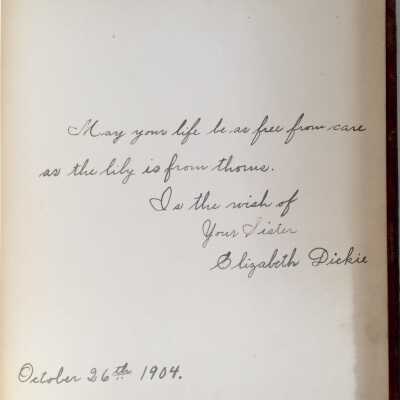 May your life be as free from care
as the lily is from thorns.
Is the wish of
Your Sister
Elizabeth Dickie
October 26th 1904.